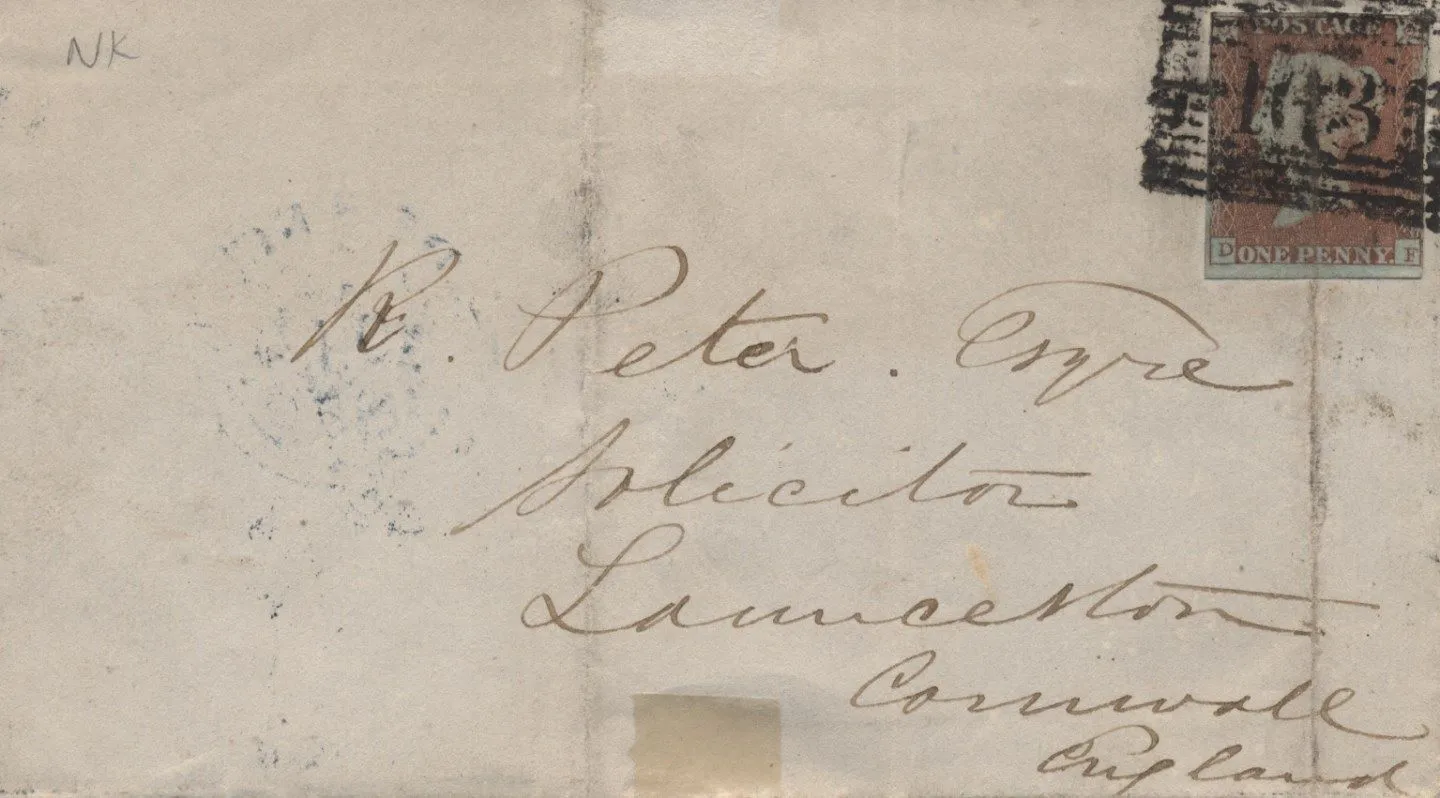 NK
POSTAGE
D ONE PENNY. F
R. Peter. Esqre
Solicitor
Launceston
Cornwall
England